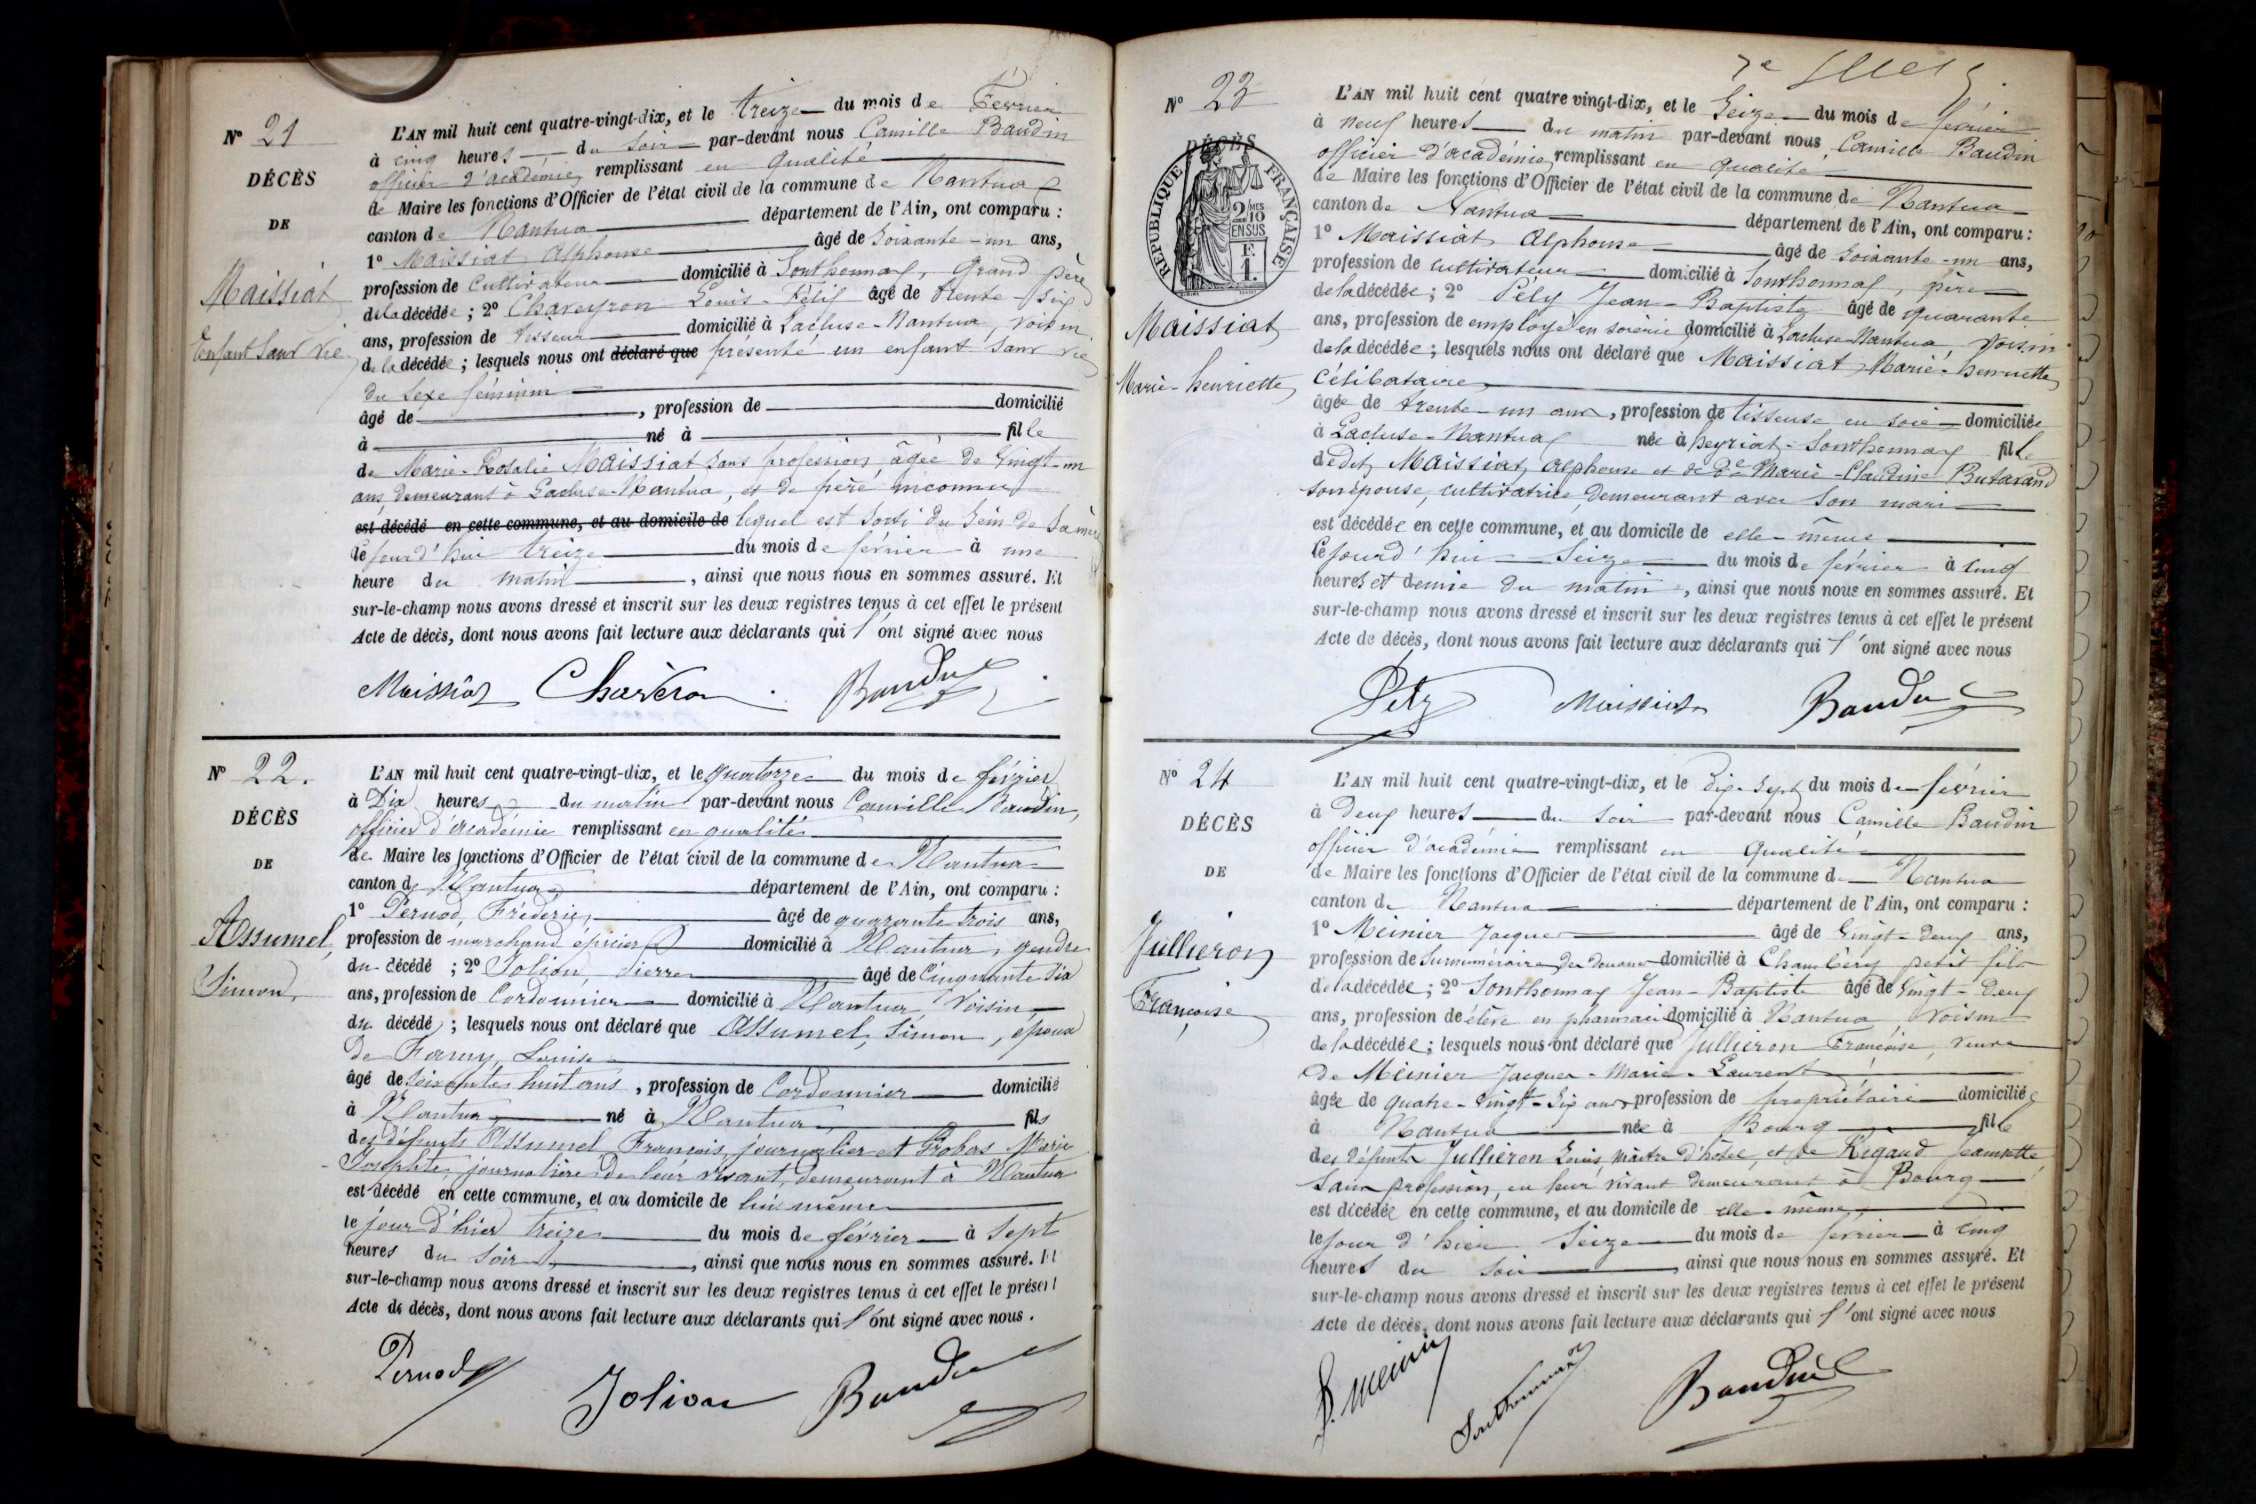 N° 21
DÉCÈS
DE
Maissiat
Enfant sans vie
L'AN mil huit cent quatre-vingt-dix, et le treize du mois de Février
à cinq heures du soir par-devant nous Camille Baudin
officier d'académie, remplissant en qualité
de Maire les fonctions d'Officier de l'état civil de la commune de Nantua
canton de Nantua département de l'Ain, ont comparu :
1° Maissiat Alphonse âgé de soixante-un ans,
profession de Cultivateur domicilié à Sonthonnax, Grand père
de la décédée ; 2° Chaveyron Louis-Félix âgé de trente-six
ans, profession de Tisseur domicilié à Lacluse-Nantua, voisin
de la décédée ; lesquels nous ont déclaré que présenté un enfant sans vie
du sexe féminin
âgé de , profession de domicilié
à né à fille
de Marie-Rosalie Maissiat sans profession, âgée de vingt-un
ans, demeurant à Lacluse-Nantua, et de père inconnu
est décédé en cette commune, et au domicile de lequel est sorti du sein de sa mère
le jourd'hui treize du mois de février à une
heure du matin , ainsi que nous nous en sommes assuré. Et
sur-le-champ nous avons dressé et inscrit sur les deux registres tenus à cet effet le présent
Acte de décès, dont nous avons fait lecture aux déclarants qui l'ont signé avec nous
Maissiat Chaveron Baudin
N° 22.
DÉCÈS
DE
Assumel,
Simon,
L'AN mil huit cent quatre-vingt-dix, et le quatorze du mois de février,
à Dix heures du matin par-devant nous Camille Baudin,
officier d'académie remplissant en qualité
de Maire les fonctions d'Officier de l'état civil de la commune de Nantua
canton de Nantua département de l'Ain, ont comparu :
1° Pernod, Fréderic, âgé de quarante trois ans,
profession de marchand épicier domicilié à Nantua, gendre
du décédé ; 2° Jolion, Pierre âgé de Cinquante six
ans, profession de Cordonnier domicilié à Nantua, voisin
du décédé ; lesquels nous ont déclaré que Assumel, Simon, époux
de Famy, Louise
âgé de soixante huit ans , profession de Cordonnier domicilié
à Nantua né à Nantua fils
des défunts Assumel François, journalier et Probas Marie
Josephte, journalière de leur vivant, demeurant à Nantua
est décédé en cette commune, et au domicile de lui même
le jour d'hier treize du mois de février à sept
heures du soir , ainsi que nous nous en sommes assuré. Et
sur-le-champ nous avons dressé et inscrit sur les deux registres tenus à cet effet le présent
Acte de décès, dont nous avons fait lecture aux déclarants qui l'ont signé avec nous.
Pernod Jolion Baudin
7e
N° 23
DÉCÈS
RÉPUBLIQUE FRANÇAISE
2/10 MES
EN SUS
1 F.
Maissiat
Marie-henriette
L'AN mil huit cent quatre vingt-dix, et le Seize du mois de février
à neuf heures du matin par-devant nous Camille Baudin
officier d'académie, remplissant en qualité
de Maire les fonctions d'Officier de l'état civil de la commune de Nantua
canton de Nantua département de l'Ain, ont comparu :
1° Maissiat Alphonse âgé de soixante-un ans,
profession de cultivateur domicilié à Sonthonnax, père
de la décédée ; 2° Pély Jean-Baptiste âgé de quarante
ans, profession de employé en soierie domicilié à Lacluse-Nantua voisin
de la décédée ; lesquels nous ont déclaré que Maissiat Marie-henriette
Célibataire
âgée de trente-un ans, profession de tisseuse en soie domiciliée
à Lacluse-Nantua née à heyriat-Sonthonnax fille
de dit Maissiat Alphonse et de De Marie-Claudine Butavand
son épouse, cultivatrice, demeurant avec son mari
est décédée en cette commune, et au domicile de elle-même
le jourd'hui Seize du mois de février à cinq
heures et demie du matin, ainsi que nous nous en sommes assuré. Et
sur-le-champ nous avons dressé et inscrit sur les deux registres tenus à cet effet le présent
Acte de décès, dont nous avons fait lecture aux déclarants qui l'ont signé avec nous
Pély Maissiat Baudin
N° 24
DÉCÈS
DE
Jullieron
Françoise
L'AN mil huit cent quatre-vingt-dix, et le Dix-Sept du mois de février
à Deux heures du soir par-devant nous Camille Baudin
officier d'académie remplissant en qualité
de Maire les fonctions d'Officier de l'état civil de la commune de Nantua
canton de Nantua département de l'Ain, ont comparu :
1° Meinier Jacques âgé de vingt-deux ans,
profession de surnuméraire des douanes domicilié à Chambéry petit fils
de la décédée ; 2° Sonthonnax Jean-Baptiste âgé de vingt-deux
ans, profession de élève en pharmacie domicilié à Nantua voisin
de la décédée ; lesquels nous ont déclaré que Jullieron Françoise, veuve
de Meinier Jacques-Marie-Laurent
âgée de quatre-vingt-six ans profession de propriétaire domiciliée
à Nantua née à Bourg fille
des défunts Jullieron Louis, maître d'hôtel, et de Rigaud Jeannette
sans profession, en leur vivant demeurant à Bourg
est décédée en cette commune, et au domicile de elle-même
le jour d'hier Seize du mois de février à cinq
heures du soir , ainsi que nous nous en sommes assuré. Et
sur-le-champ nous avons dressé et inscrit sur les deux registres tenus à cet effet le présent
Acte de décès, dont nous avons fait lecture aux déclarants qui l'ont signé avec nous
J. Meinier Sonthonnax Baudin